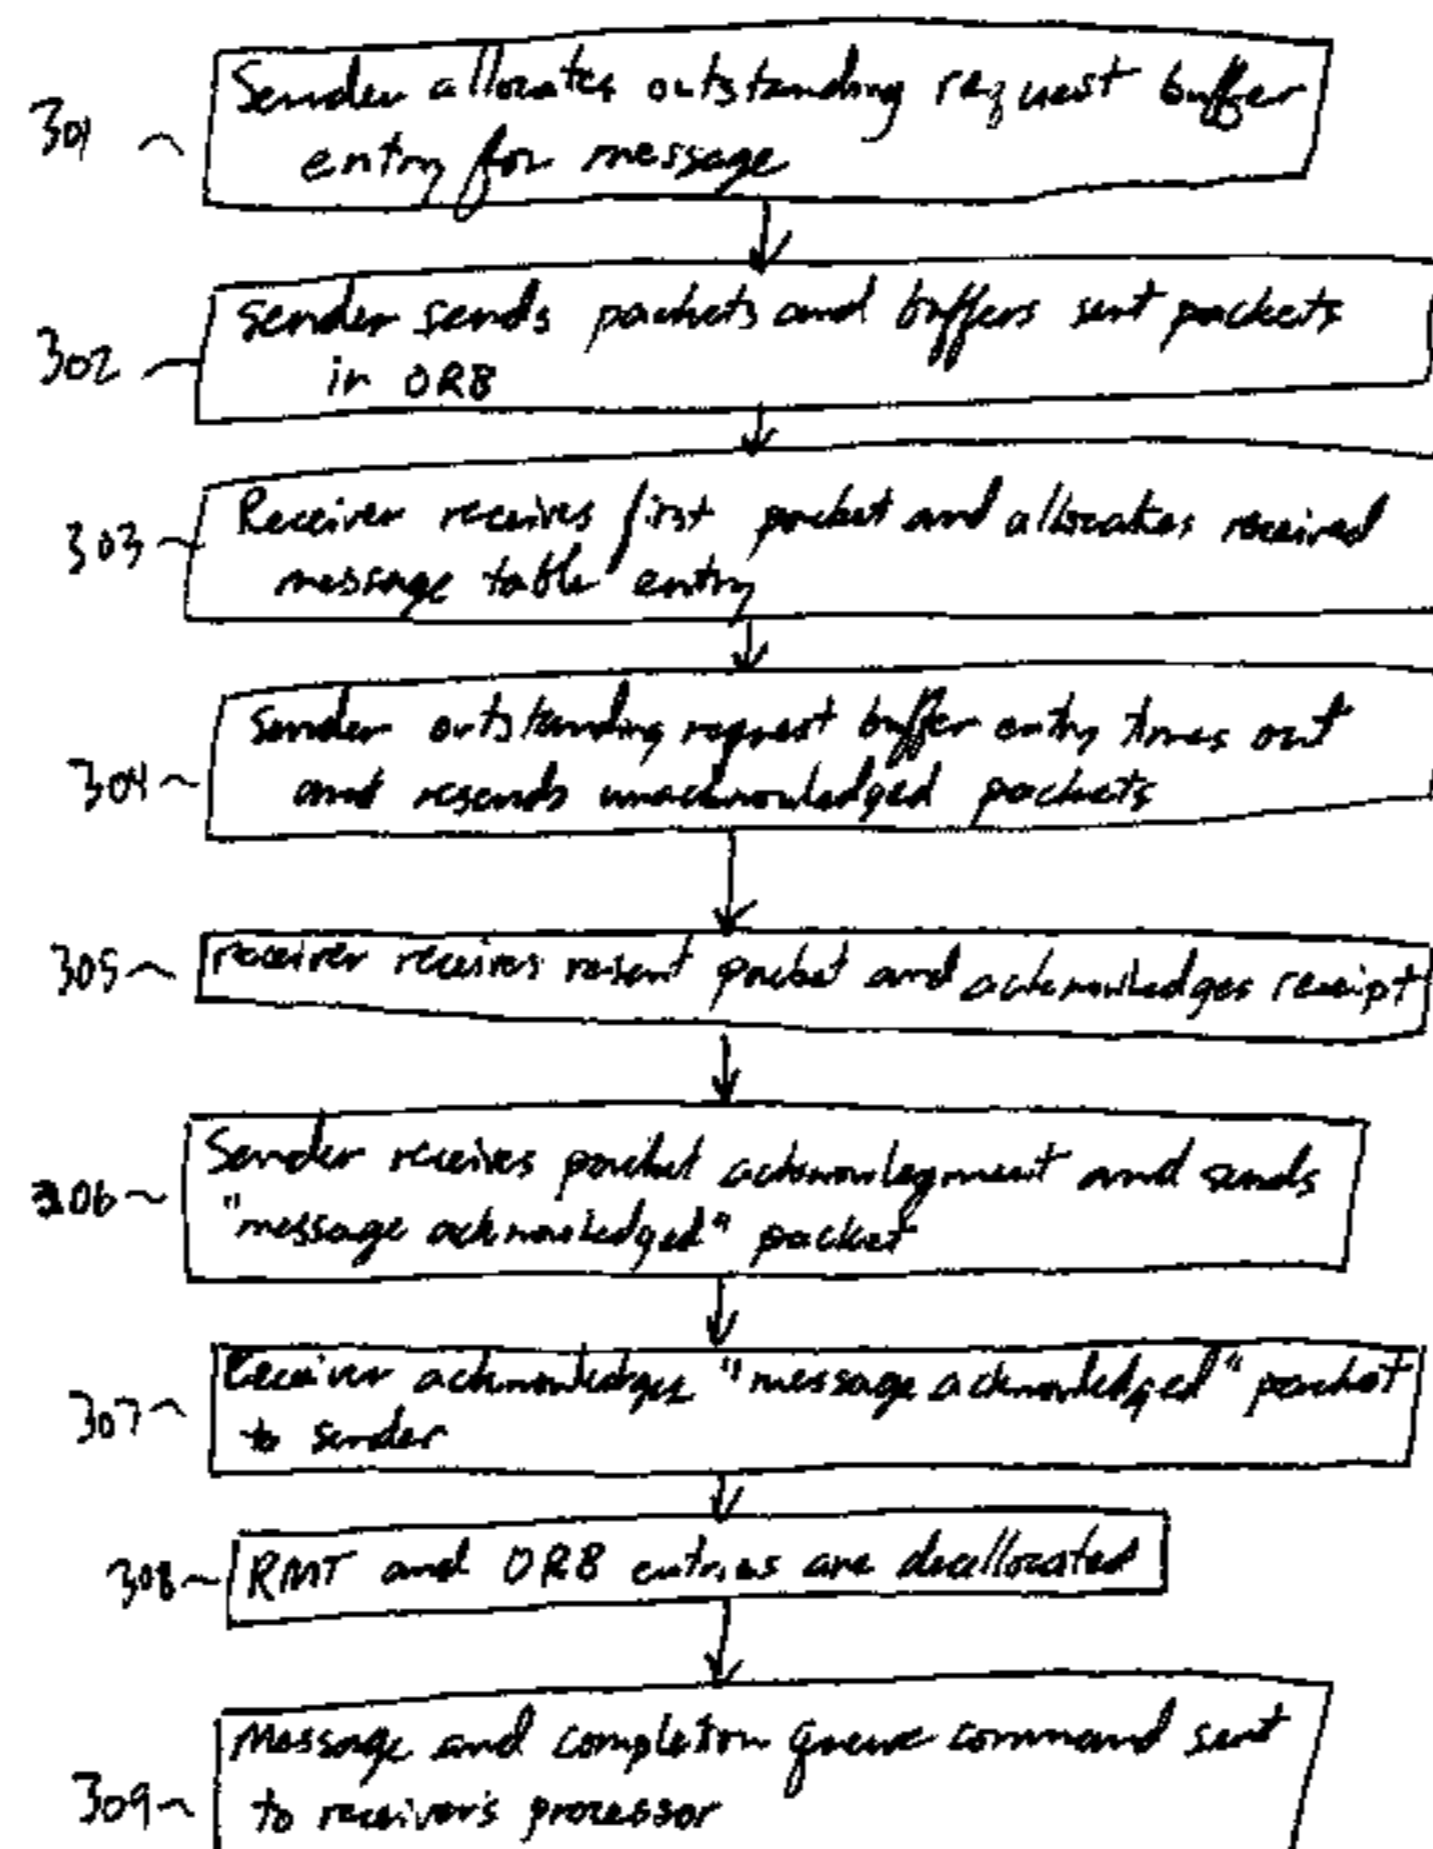 301
Sender allocates outstanding request buffer
entry for message
302
Sender sends packets and buffers sent packets
in ORB
303
Receiver receives first packet and allocates received
message table entry
304
Sender outstanding request buffer entry times out
and resends unacknowledged packets
305
receiver receives resent packet and acknowledges receipt
306
Sender receives packet acknowlegment and sends
"message acknowledged" packet
307
Receiver acknowledges "message acknowledged" packet
to sender
308
RMT and ORB entries are deallocated
309
Message and completion queue command sent
to receiver's processor